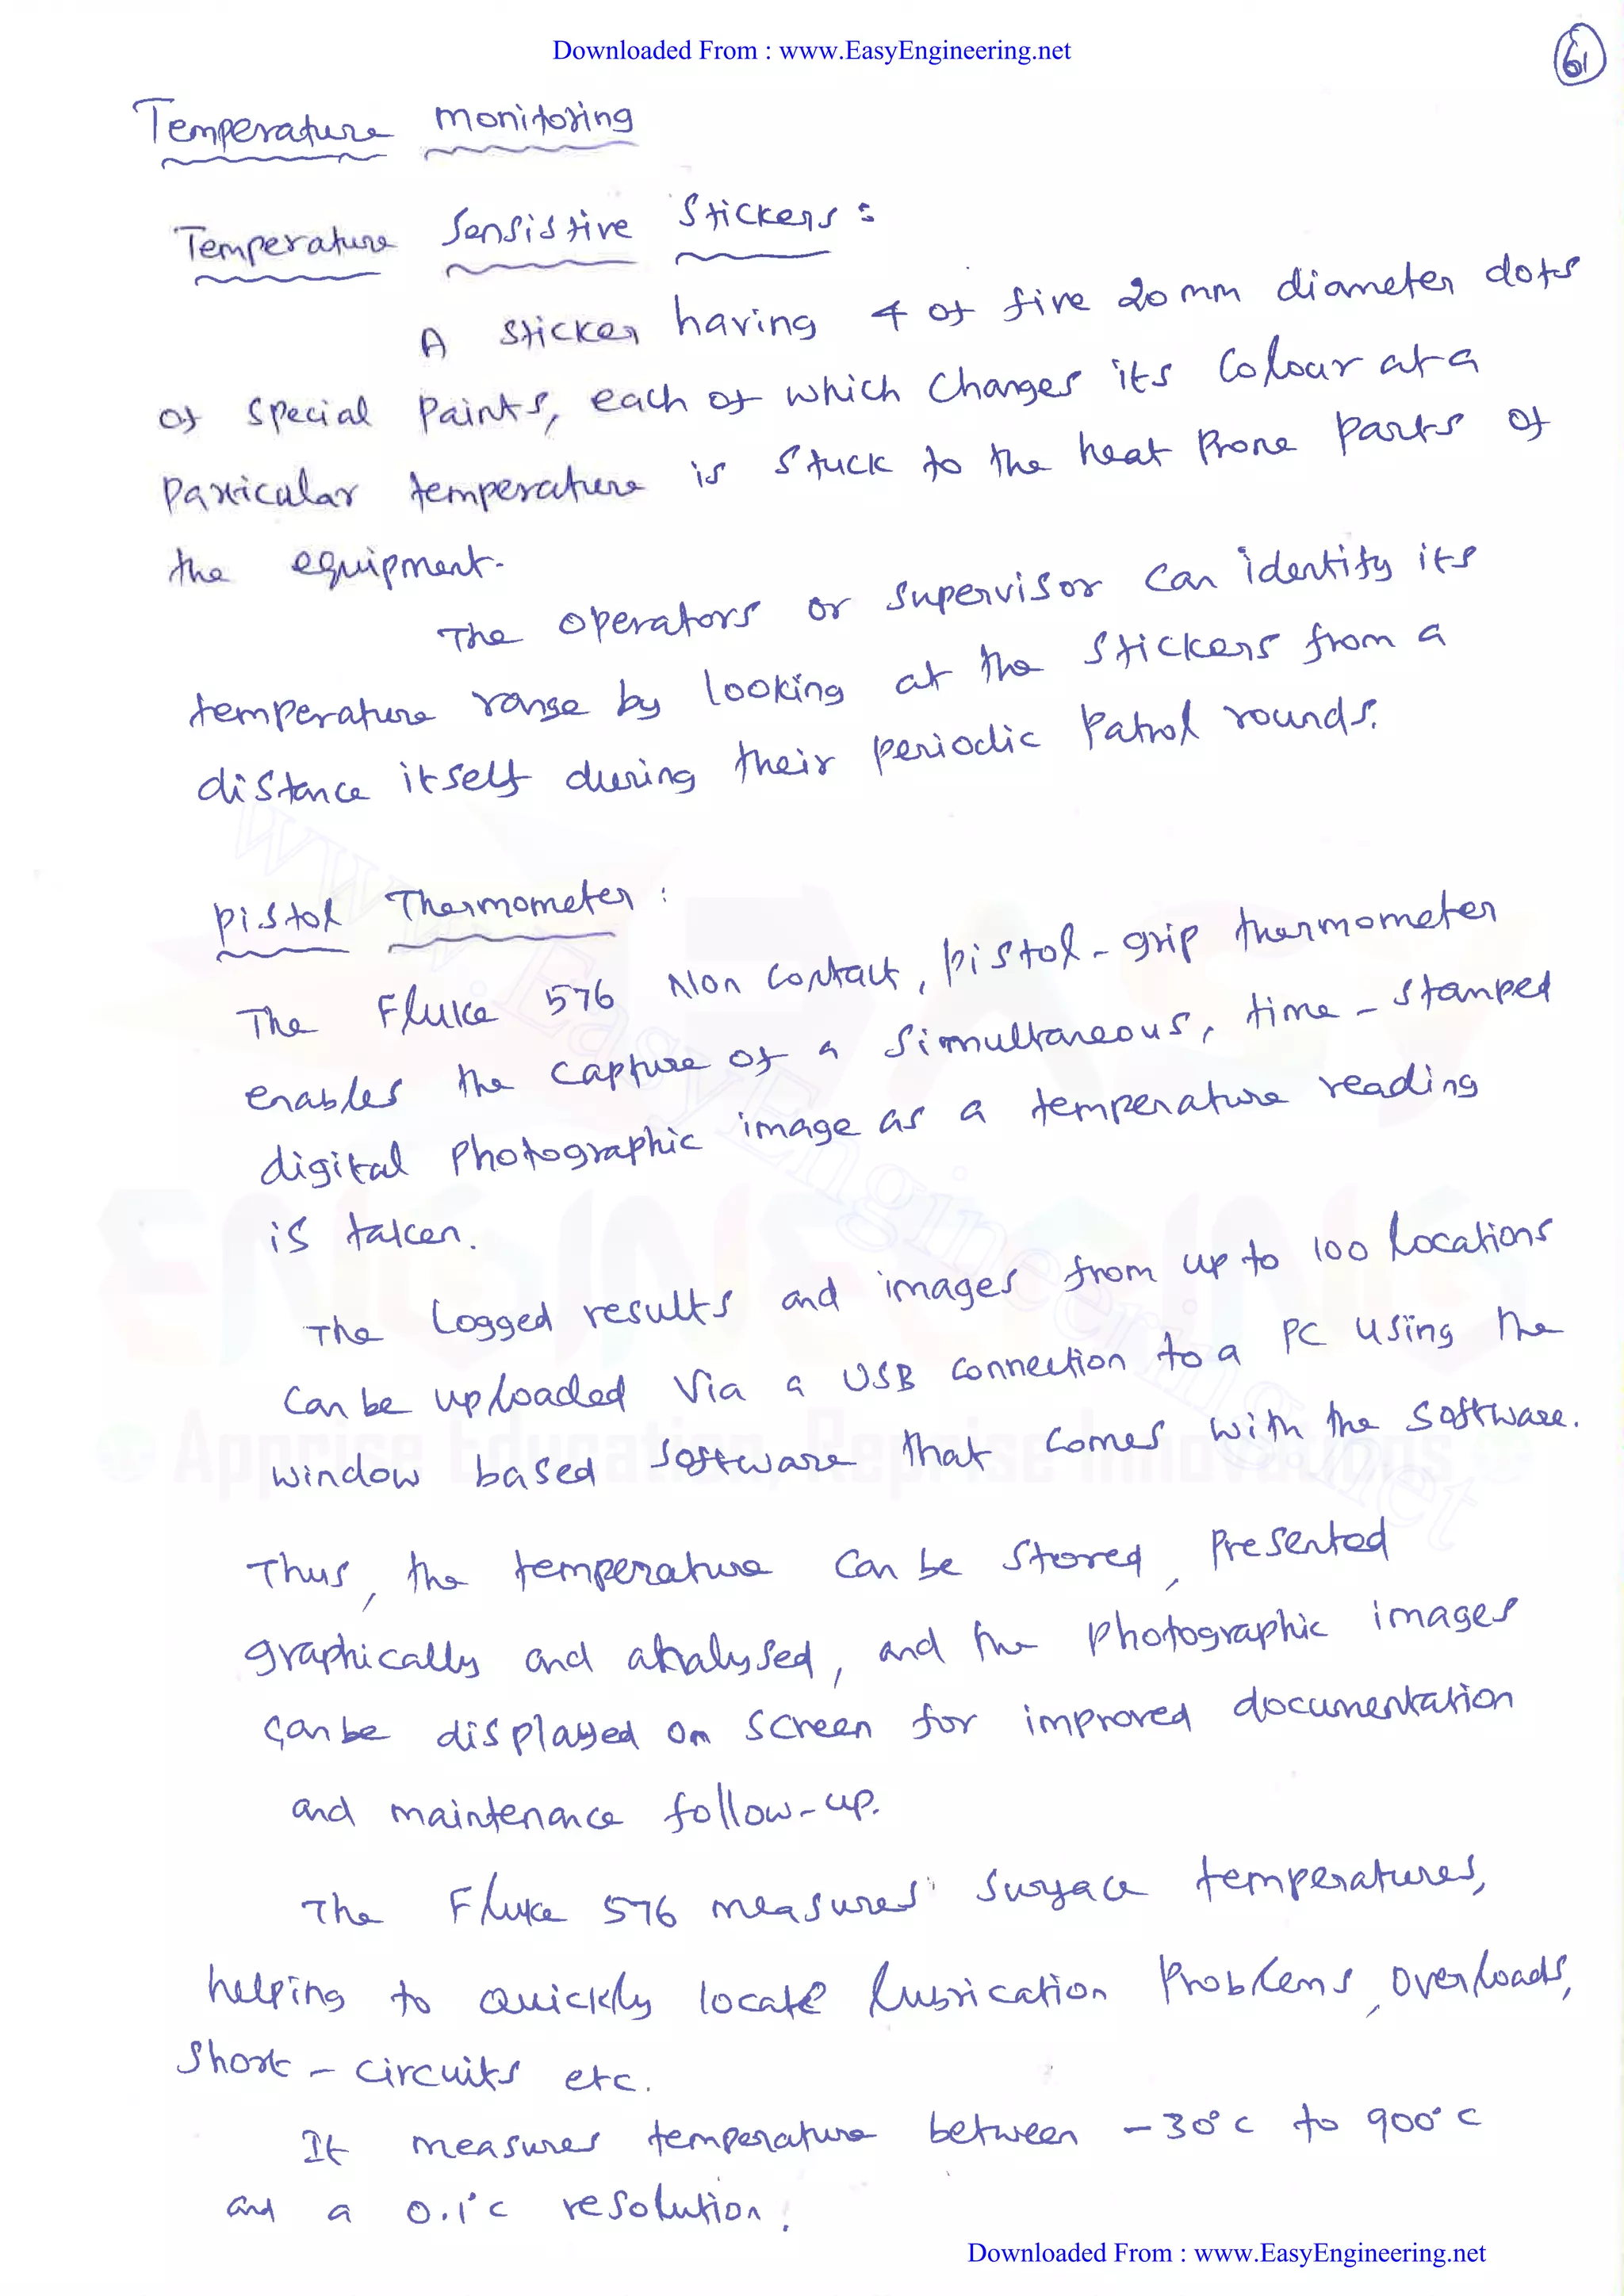 Downloaded From : www.EasyEngineering.net
61
Temperature monitoring
Temperature Sensistive Stickers :
A sticker having 4 of five 20 mm diameter dots
of special paints, each of which changes its Colour at a
particular temperature is stuck to the heat prone parts of
the equipment.
The operators or supervisor can identify its
temperature range by looking at the stickers from a
distance itself during their periodic patrol rounds.
pistol Thermometer :
The Fluke 576 Non contact, pistol-grip thermometer
enables the capture of a simultaneous, time-stamped
digital photographic image as a temperature reading
is taken.
The Logged results and images from up to 100 locations
Can be uploaded Via a USB connection to a PC using the
window based software that comes with the software.
Thus, the temperature can be stored, presented
graphically and analysed, and the photographic images
can be displayed on screen for improved documentation
and maintenance follow-up.
The Fluke 576 measures surface temperatures,
helping to quickly locate lubrication problems, overloads,
short-circuits etc.
It measures temperature between -30°c to 900°c
and a 0.1°c resolution.
www.EasyEngineering.net
ENGINEERING
Apprise Education, Reprise Innovations
Downloaded From : www.EasyEngineering.net